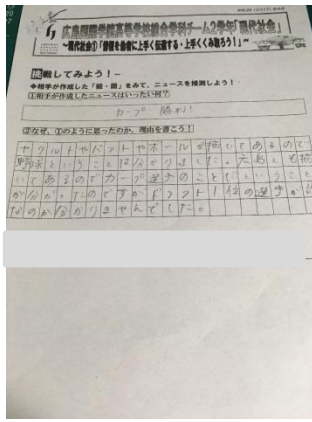 広島国際学院高等学校総合学科チーム2学年「現代社会」
～現代社会①「情報を他者に上手く伝達する・上手くくみ取ろう！」～
挑戦してみよう！－
◆相手が作成した「絵・図」をみて、ニュースを推測しよう！
①相手が作成したニュースはいったい何？
カープ 勝利!
②なぜ、①のように思ったのか、理由を書こう！
ヤクルトやバットやボールが描いてあるので
野球ということは分かりました。広島とも描
いてあるのでカープ選手のことだということ
が分かったのですがドラフト1位の選手が
なのか分かりませんでした。